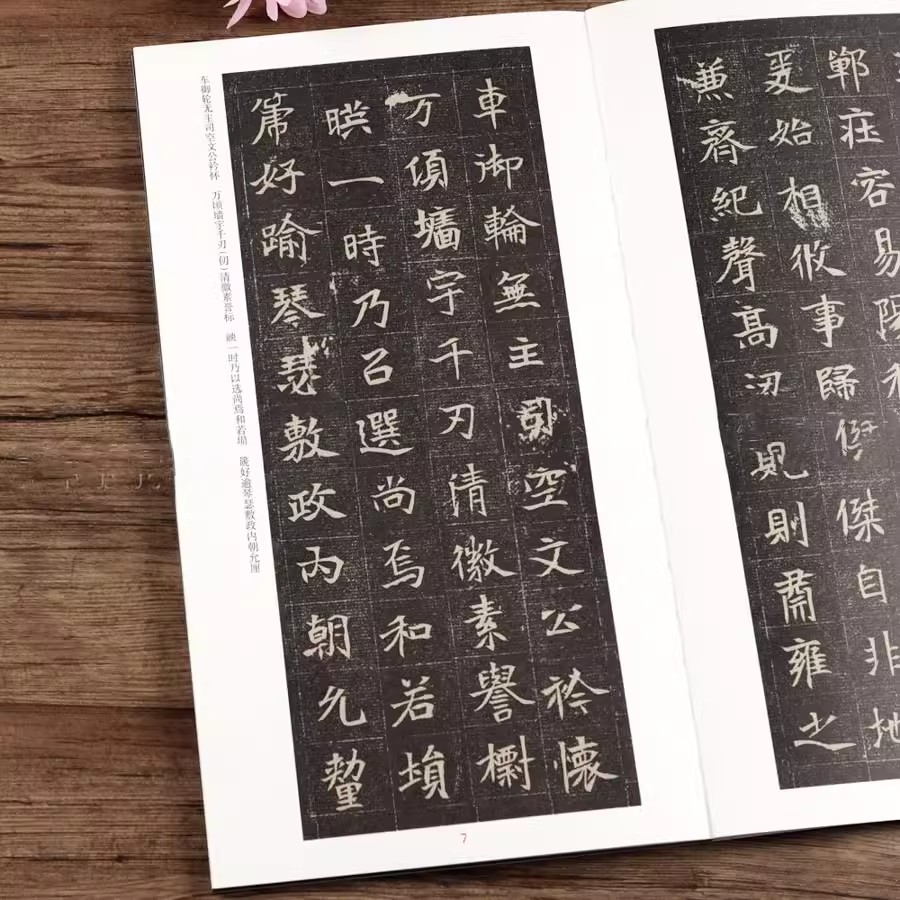 鄲莊容易陳
爰始相攸事歸傑自非地
兼齊紀聲高規則肅雍之
車御輪無主司空文公衿懷
万頃墻宇千刃清徽素譽標
暎一時乃㠯選尚焉和若塤
箎好踰琴瑟敷政內朝允釐
车御轮无主司空文公衿怀 万顷墙宇千刃(仞)清徽素誉标 暎一时乃以选尚焉和若埙 篪好逾琴瑟敷政内朝允厘
7